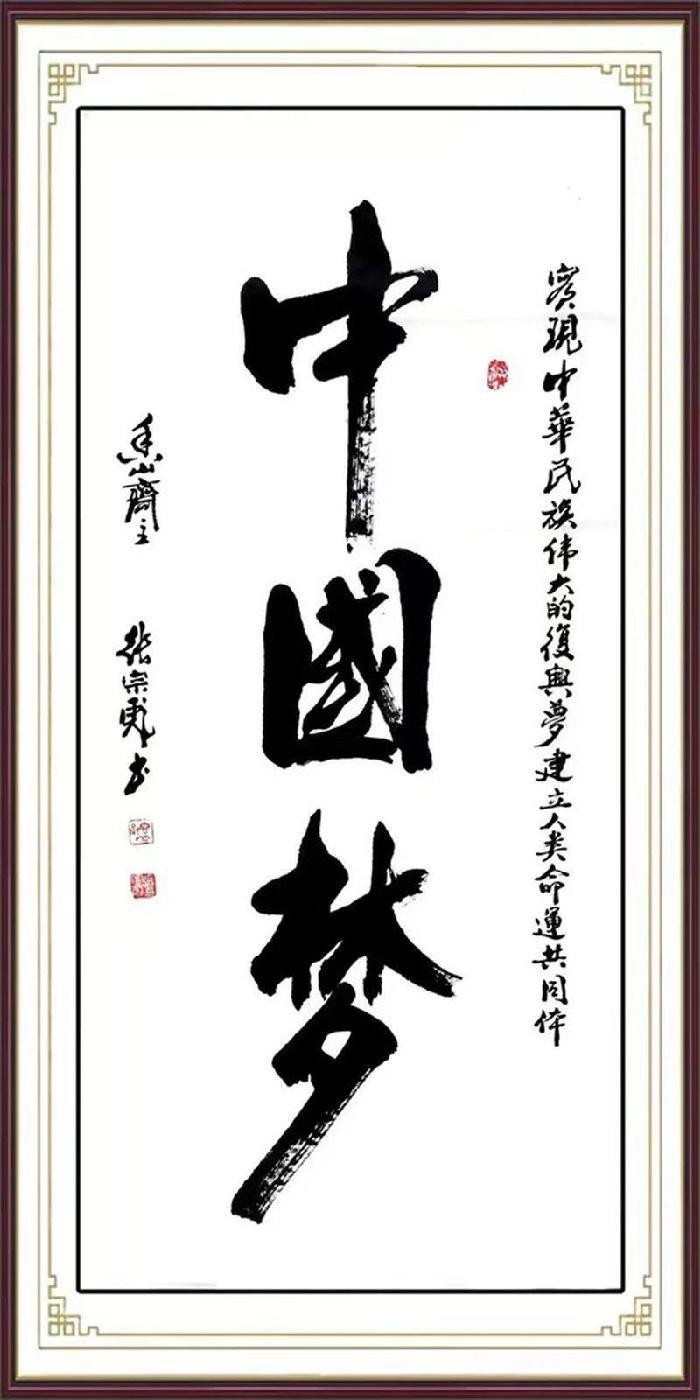 實現中華民族伟大的復興夢建立人类命運共同体
中國梦
香山齋主 张宗彪书